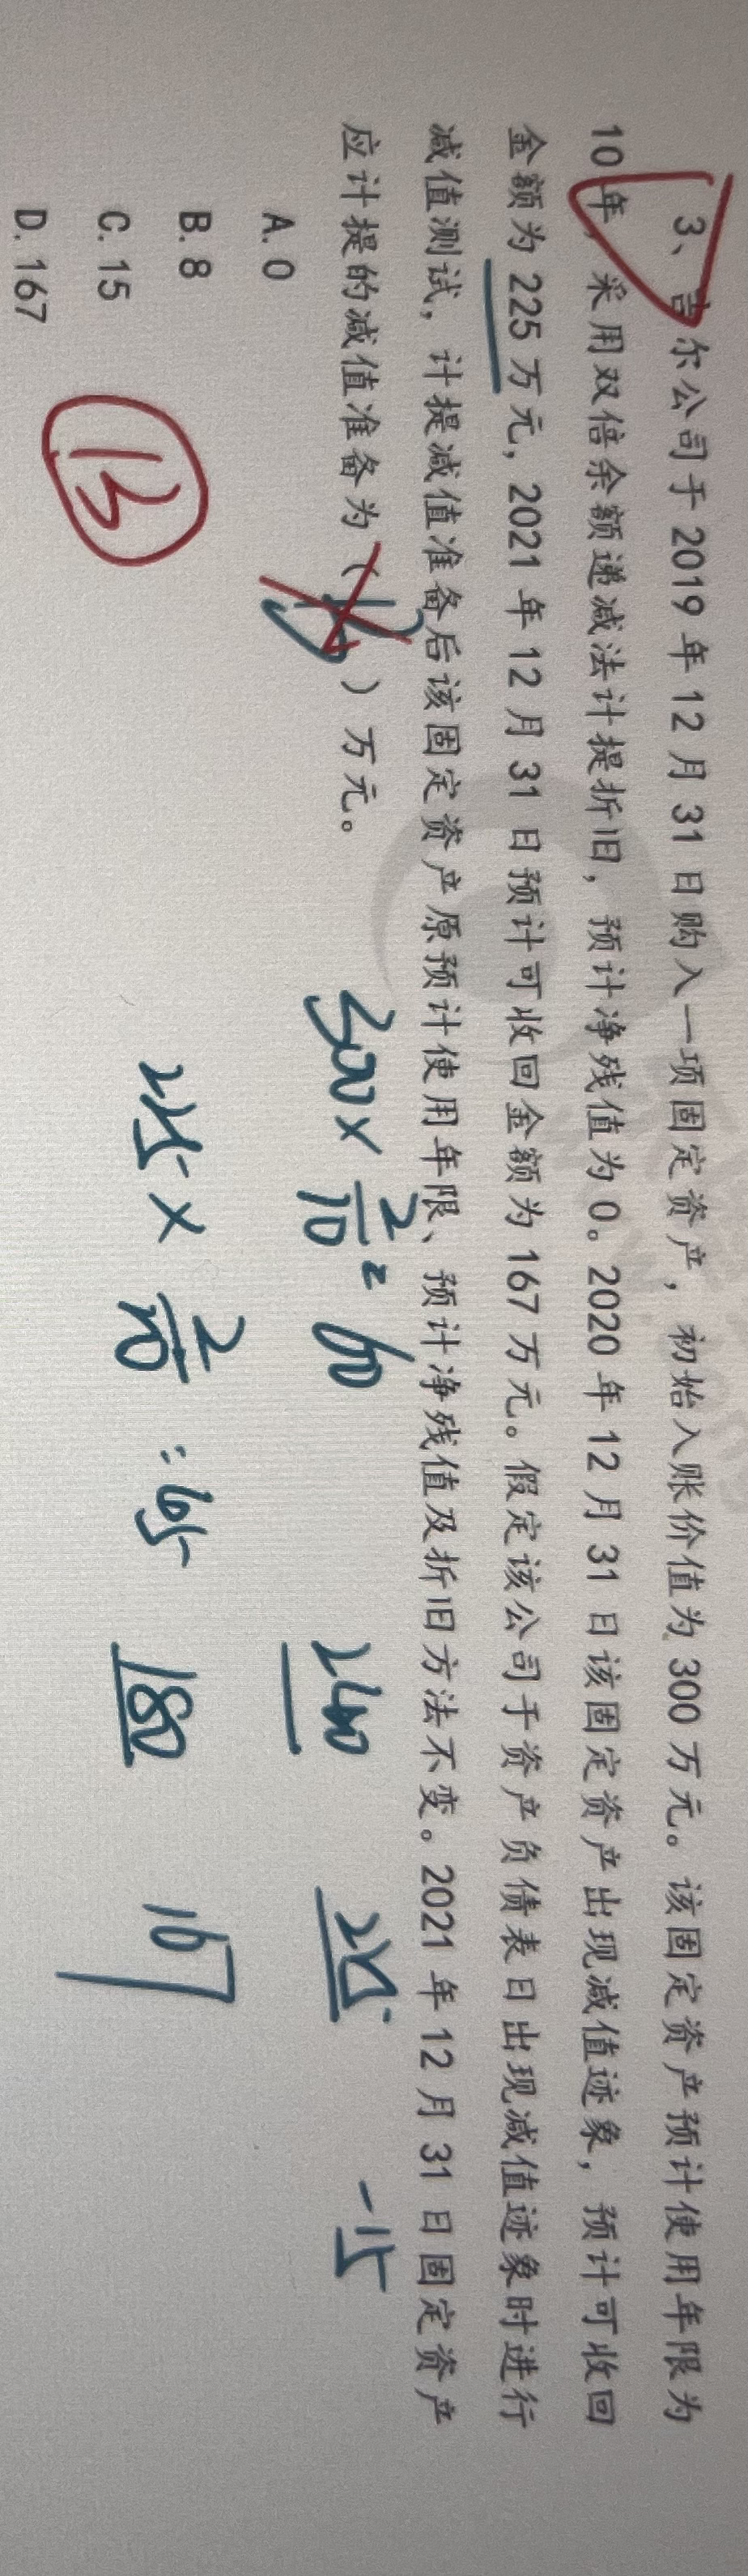 3、吉尔公司于 2019 年 12 月 31 日购入一项固定资产，初始入账价值为 300 万元。该固定资产预计使用年限为
10 年，采用双倍余额递减法计提折旧，预计净残值为 0。2020 年 12 月 31 日该固定资产出现减值迹象，预计可收回
金额为 225 万元，2021 年 12 月 31 日预计可收回金额为 167 万元。假定该公司于资产负债表日出现减值迹象时进行
减值测试，计提减值准备后该固定资产原预计使用年限、预计净残值及折旧方法不变。2021 年 12 月 31 日固定资产
应计提的减值准备为（ ）万元。
A. 0
B. 8
C. 15
D. 167
B
300 × 2/10 = 60 240 225 -15
225 × 2/10 = 45 180 167